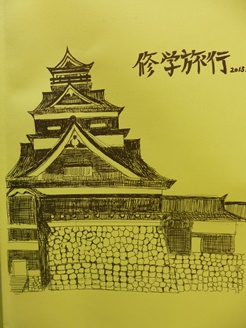 修学旅行 2013.